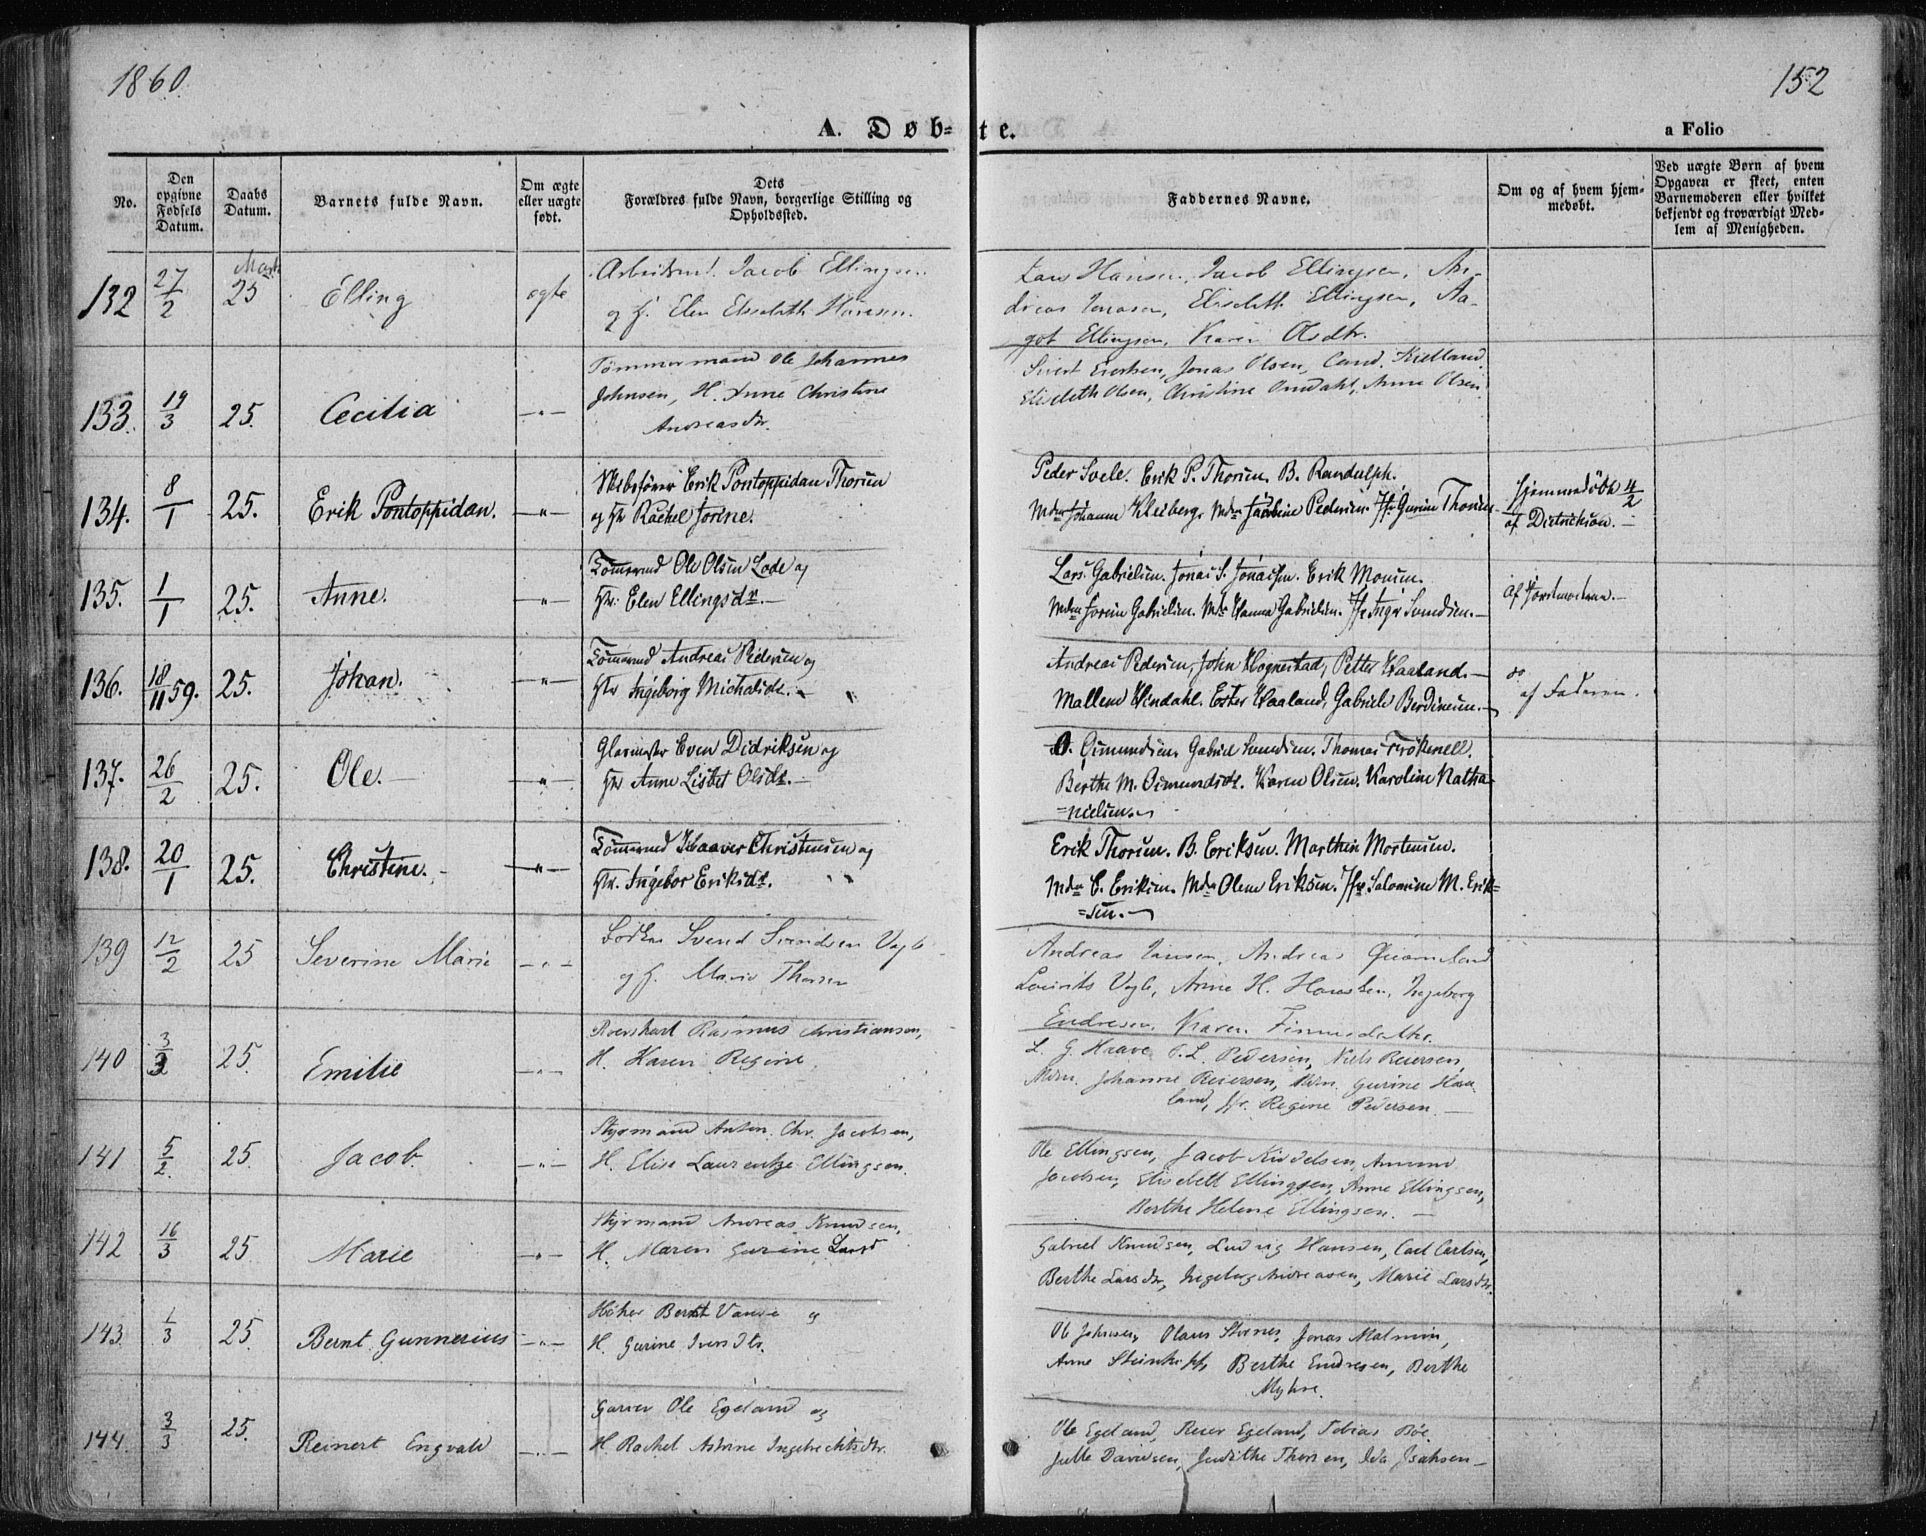 1860
152
A. Døb-te.
a Folio
No.
Den opgivne Fødsels Datum.
Daabs Datum.
Barnets fulde Navn.
Om ægte eller uægte født.
Dets Forældres fulde Navn, borgerlige Stilling og Opholdssted.
Faddernes Navne.
Om og af hvem hjemmedøbt.
Ved uægte Børn af hvem Opgaven er skeet, enten Barnemoderen eller hvilket bekjendt og troværdigt Medlem af Menigheden.
132 27/2 Marts 25 Elling ægte
Jacob Ellingsen
og H. Elen Elisabeth Hansen.
Lars Hansen, Jacob Ellingsen, An-
dreas Jonasen, Elisabeth Ellingsen, Aa-
got Ellingsen, Karen Olsdtr.
133. 19/3 25. Cecilia —"—
Tømmermand Ole Johannes
Johnsen, H. Anne Christine
Andreasdtr.
Sivert Evertsen, Jonas Olsen, Cand. Kielland.
Elisabeth Olsen, Christine Omdahl, Anne Olsen.
134. 8/1 25. Erik Pontoppidan. —"—
Skibsfører Erik Pontoppidan Thorsen
og Hr Rachel Jorine.
Peder Svele. Erik P. Thorsen. B. Randulph.
Mdm Johanne Kleiberg. Mdm Jacobine Pedersen. Jfr Gurine Thorsen
Hjemmedøbt 4/2
af Didrickson.—
135. 1/1 25. Anne. "—
Tømmermd Ole Olsen Lode og
Hr. Elen Ellingsdr.—
Lars Gabrielsen. Jonas S. Jonassen. Erik Monsen.
Mdm Gabrielsen. Mdm Hanna Gabrielsen. Jfr Inger Svendsen.—
af Jordmoderen.—
136. 18/11 59. 25. Johan. "—
Tømmermd Andreas Pedersen og
Hr Ingeborg
Andreas Pedersen, John Hognestad, Petter Haaland.—
Mallene Vindahl. Ester Haaland, Gabriele Berdinesen.—
do
af Faderen.
137. 26/2 25. Ole.— "—
Glarmester Even Didriksen og
Hr Anne Lisbet Olsdt.—
O. Gimundsen. Gabriel Svendsen. Thomas
Berthe M. Karen Olsen. Karoline Natha-
=nielsen.
138. 20/1 25. Christine.- —"—
Tømmermd Haaver Christensen og
Hr. Ingebor Eriksdt.
Erik Thorsen. B. Eriksen. Marthin Mortensen.
Mdm C. Eriksen. Mdm Olene Eriksen. Jfr Salomine M. Erik=
=sen.—
139 12/2 25 Severine Marie —"—
Svend Svendsen Vagle
og H. Marie Thorsen
Andreas Jansen, Andreas Qvameland
Lourits Vagle, Anne H. Hansken, Ingeborg
Endresen, Karen Finnesdatter.
140 3/2 25 Emilie —"—
Rasmus Christiansen,
H. Karen Regine
L. G. Haave, T. L. Pedersen, Niels Reiersen,
Mdm. Johanne Reiersen, Mdm. Gurine Haa-
land, Jfr. Regine Pedersen.—
141 5/2 25. Jacob. —"—
Styrmand Anton Chr. Jacobsen,
H. Elise Laurentze Ellingsen.
Ole Ellingsen, Jacob Kiddelsen, Amund
Jacobsen, Elisabeth Ellingsen, Anne Ellingsen,
Berthe Helene Ellingsen.—
142 16/3 25 Marie —"—
Styrmand Andreas Knudsen,
H. Maren Gurine Larsd
Gabriel Knudsen, Ludvig Hansen, Carl Carlsen,
Berthe Larsdtr, Ingeborg Andreasen, Marie Larsdtr.
143. 1/3 25 Bernt Gunnerius —"—
Høker Bernt og
H. Gurine Iversdtr.
Ole Johnsen, Olaus Jonas Malmin,
Anne Berthe Endresen, Berthe
Myhre.
144. 3/3 25. Reinert Engvald —"—
Garver Ole Egeland og
H. Rachel Ingebrechtsdtr.
Ole Egeland, Reier Egeland, Tobias Bøe.
Julle Davidsen, Judithe Thorsen, Ida Isaksen—